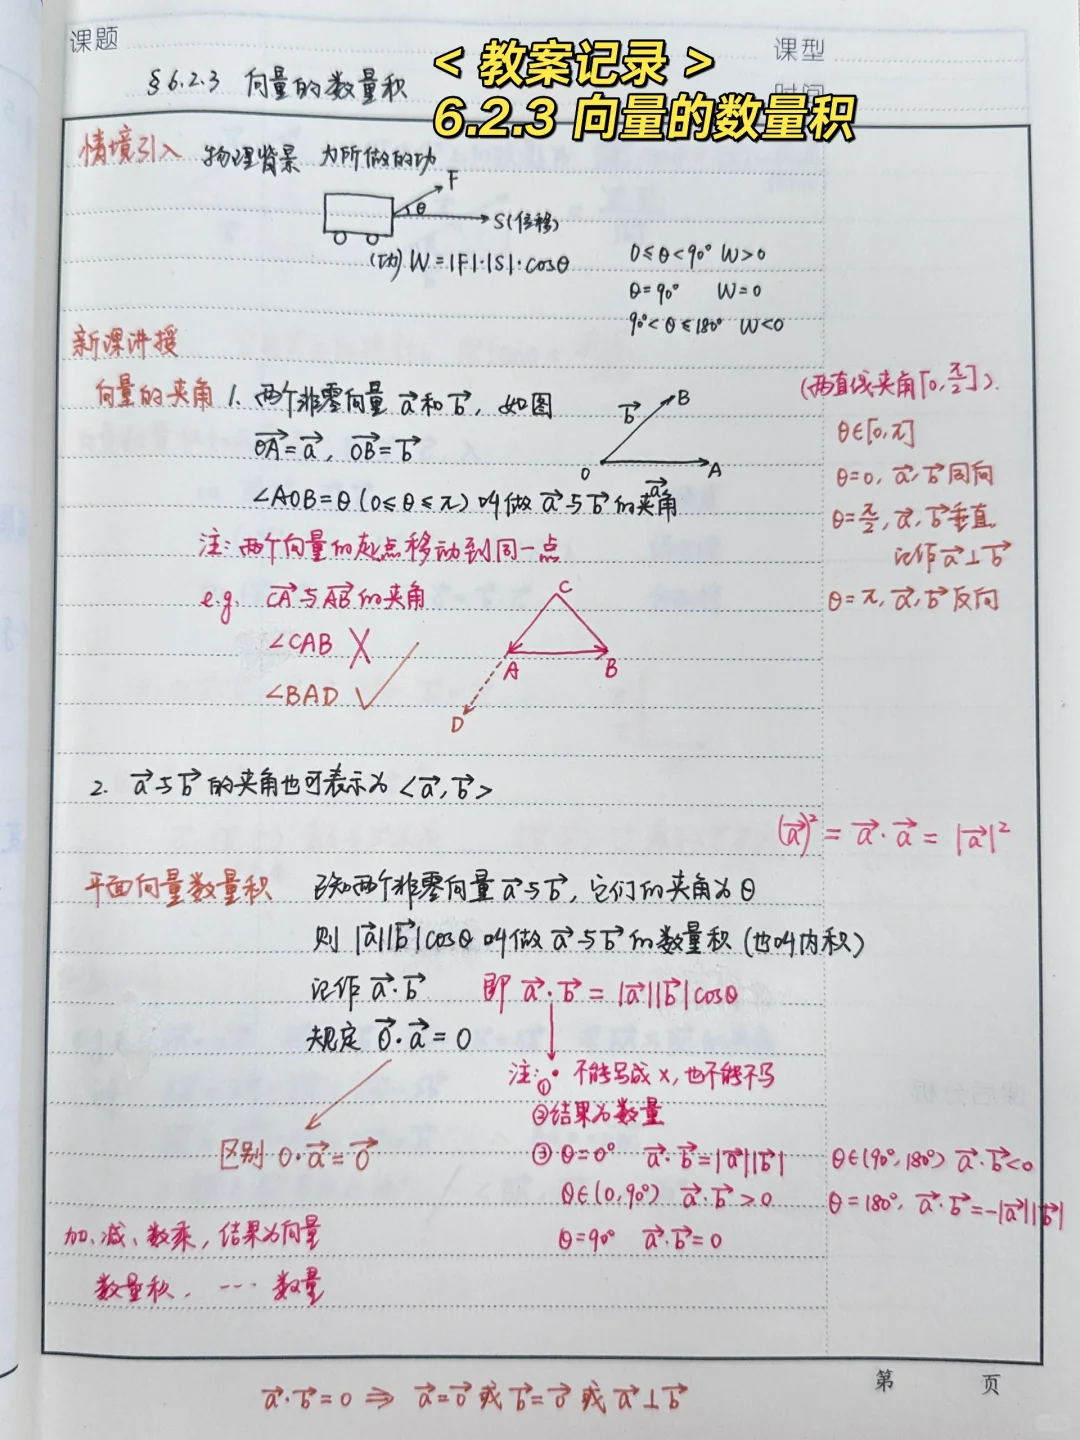 课题
课型
时间
< 教案记录 >
6.2.3 向量的数量积
§6.2.3 向量的数量积
情境引入 物理背景 力所做的功
F
θ
S(位移)
(功) W=|F|·|S|·cosθ
0≤θ<90° W>0
θ=90° W=0
90°<θ≤180° W<0
新课讲授
向量的夹角 1. 两个非零向量 a⃗ 和 b⃗, 如图
OA⃗=a⃗, OB⃗=b⃗
∠AOB=θ (0≤θ≤π) 叫做 a⃗ 与 b⃗ 的夹角
b⃗
B
O
A
a⃗
(两直线夹角[0,π/2]).
θ∈[0,π]
θ=0, a⃗, b⃗ 同向
θ=π/2, a⃗, b⃗ 垂直
记作 a⃗⊥b⃗
θ=π, a⃗, b⃗ 反向
注: 两个向量的起点移动到同一点
e.g. CA⃗ 与 AB⃗ 的夹角
∠CAB ✗
∠BAD ✓
C
A
B
D
2. a⃗ 与 b⃗ 的夹角也可表示为 <a⃗, b⃗>
(a⃗)² = a⃗·a⃗ = |a⃗|²
平面向量数量积 已知两个非零向量 a⃗ 与 b⃗, 它们的夹角为 θ
则 |a⃗||b⃗|cosθ 叫做 a⃗ 与 b⃗ 的数量积 (也叫内积)
记作 a⃗·b⃗ 即 a⃗·b⃗ = |a⃗||b⃗|cosθ
规定 0⃗·a⃗=0
注: ① · 不能写成 ×, 也不能不写
②结果为数量
区别 0·a⃗=0⃗
③ θ=0° a⃗·b⃗=|a⃗||b⃗|
θ∈(0,90°) a⃗·b⃗>0
θ=90° a⃗·b⃗=0
θ∈(90°,180°) a⃗·b⃗<0
θ=180°, a⃗·b⃗=-|a⃗||b⃗|
加、减、数乘, 结果为向量
数量积, ···· 数量
第 页
a⃗·b⃗=0 ⇒ a⃗=0⃗ 或 b⃗=0⃗ 或 a⃗⊥b⃗